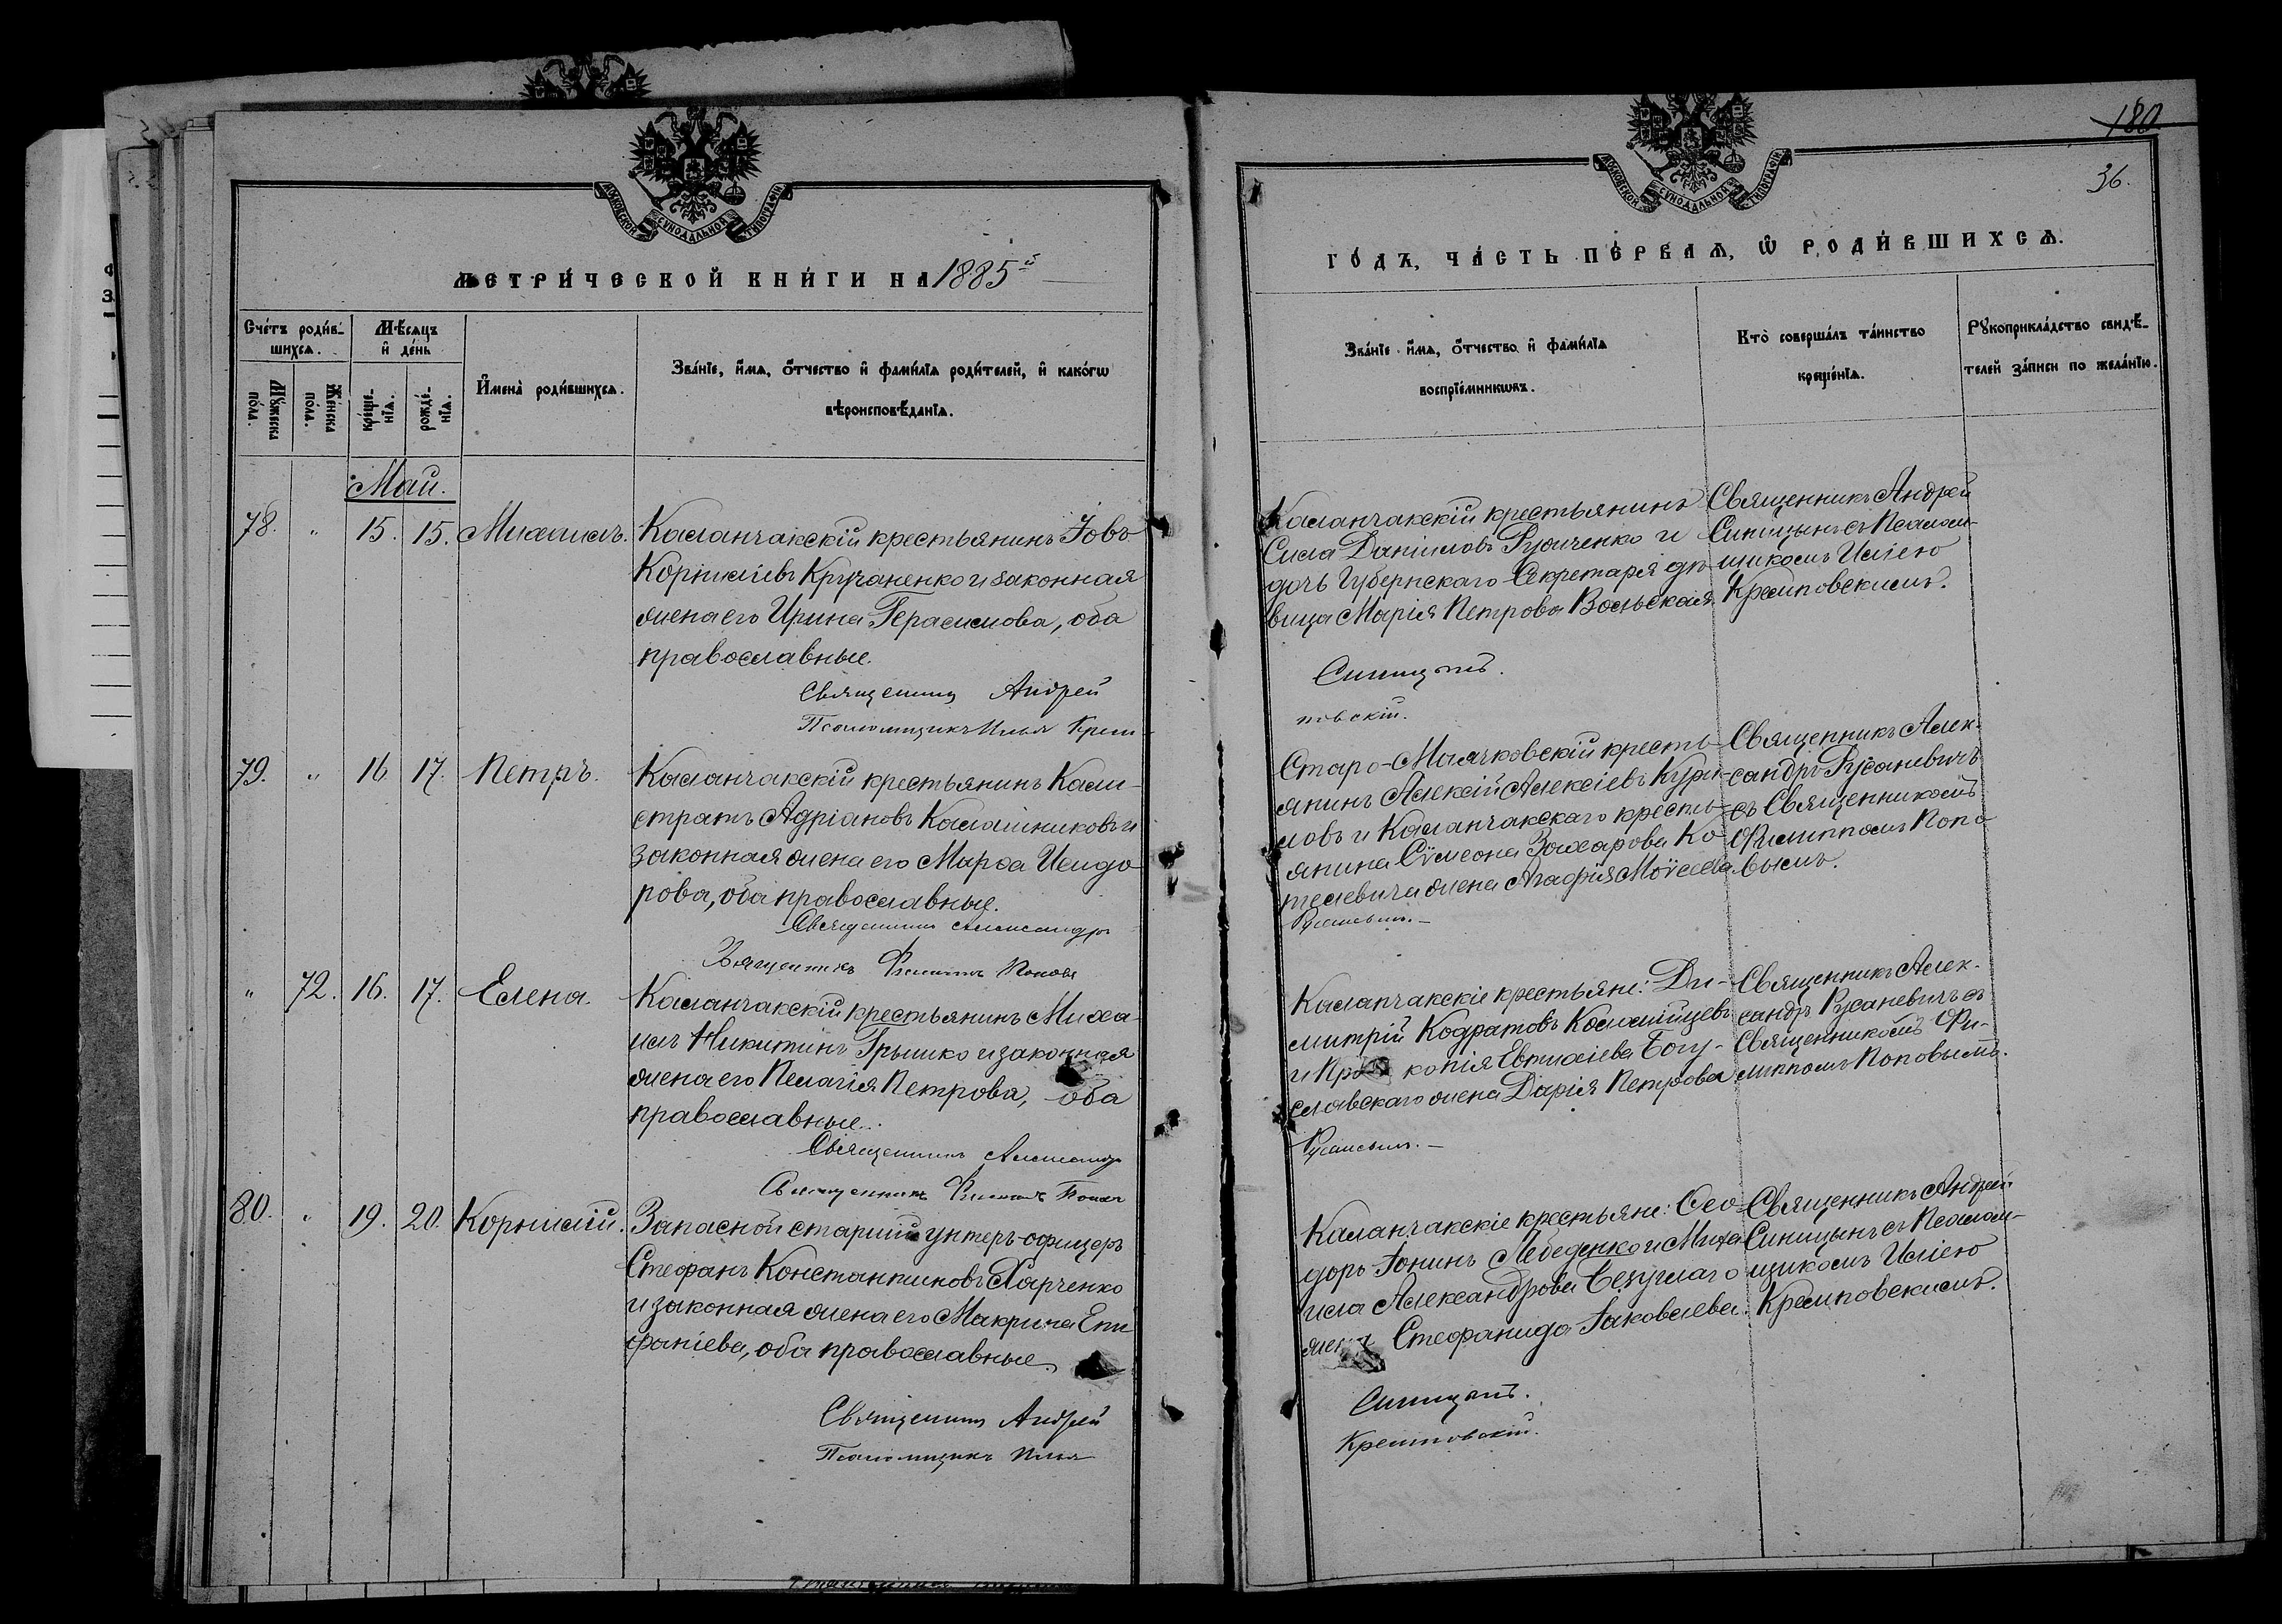 МОСКОВСКОЙ СѴНОДАЛЬНОЙ ТИПОГРАФІИ
МЕТРИ́ЧЕСКОЙ КНИ́ГИ НА 1885й
Сче́тъ роди́в-
шихсѧ.
Мѣ́сѧцъ
и҆ де́нь
Мꙋ́жеска
по́ла.
Же́нска
по́ла.
креще-
нїѧ.
рожде-
нїѧ.
И҆мена̀ роди́вшихсѧ.
Зва́нїе, и҆́мѧ, ѻ҆́тчество и҆ фами́лїѧ роди́телей, и҆ како́гѡ
вѣроисповѣ́данїѧ.
Май.
78. " 15. 15. Михаилъ.
Каланчакскій крестьянинъ Іовъ
Корнилiевъ Кручаненко и законная
жена его Ирина Герасимова, оба
православные.
Священникъ Андрей
Псаломщикъ Илья Крем-
79. " 16 17. Петръ.
Каланчакскій крестьянинъ Кали-
стратъ Адріановъ Калашниковъ и
законная жена его Марѳа Исидо
рова, оба православные.
Священникъ Александръ
Священникъ Филиппъ Поповъ
" 72. 16. 17. Елена.
Каланчакскій крестьянинъ Миха-
илъ Никитинъ Грышко и законная
жена его Пелагія Петрова, оба
православные.
Священникъ Александръ
Священникъ Филиппъ Поповъ
80. " 19. 20. Корнилій.
Запасной старшій унтеръ-офицеръ
Стефанъ Константиновъ Харченко
и законная жена его Макрина Епи
фаніева, оба православные.
Священникъ Андрей
Псаломщикъ Илья
180
36.
МОСКОВСКОЙ СѴНОДАЛЬНОЙ ТИПОГРАФІИ
ГО́ДЪ, ЧА́СТЬ ПЕ́РВАѦ, Ѡ҆ РОДИ́ВШИХСѦ.
Зва́нїе и҆́мѧ, ѻ҆́тчество и҆ фами́лїѧ
воспрїе́мникѡвъ.
Кто̀ соверша́лъ та́инство
креще́нїѧ.
Рꙋкоприкла́дство свидѣ́-
телей за́писи по жела́нїю.
Каланчакскій крестьянинъ
Сила Даніиловъ Рудченко и
дочь Губернскаго Секретаря дѣ
вица Марія Петрова Вольская.
Священникъ Андрей
Синицынъ съ Псалом-
щикомъ Иліею
Кремповскимъ.
Синицынъ.
повскій.
Старо-Маячковскій кресть
янинъ Алексій Алексіевъ Кури-
ловъ и Каланчакскаго кресть-
янина Сѵмеона Захарова Ко
телевича жена Агафія Моѵсеева.
Священникъ Алек-
сандръ Русаневичъ
съ Священникомъ
Филиппомъ Попо
вымъ.
Русаневичъ.-
Каланчакскіе крестьяне: Ди-
митрій Кодратовъ Коломійцевъ
и Прокопія Евтихіева Богу-
славскаго жена Дарія Петрова
Священникъ Алек-
сандръ Русаневичъ съ
Священникомъ Фи-
липпомъ Поповымъ.
Русаневичъ.-
Каланчакскіе крестьяне: Ѳео-
доръ Іонинъ Лебеденко и Миха
ила Александрова Безуглаго
жена Стефанида Іаковлева.
Священникъ Андрей
Синицынъ съ Псалом-
щикомъ Иліею
Кремповскимъ.
Синицынъ.
Кремповскій.